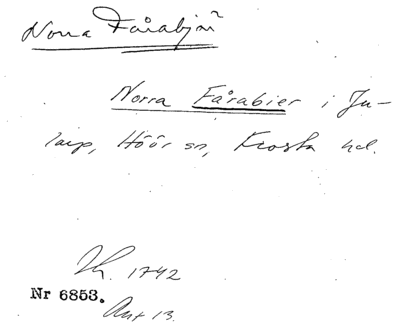 Norra Fårabjär
Norra Fårabier i Ju-
larp, Höör sn, Frosta hd.
Th. 1742
Nr 6853.
Akt 13.